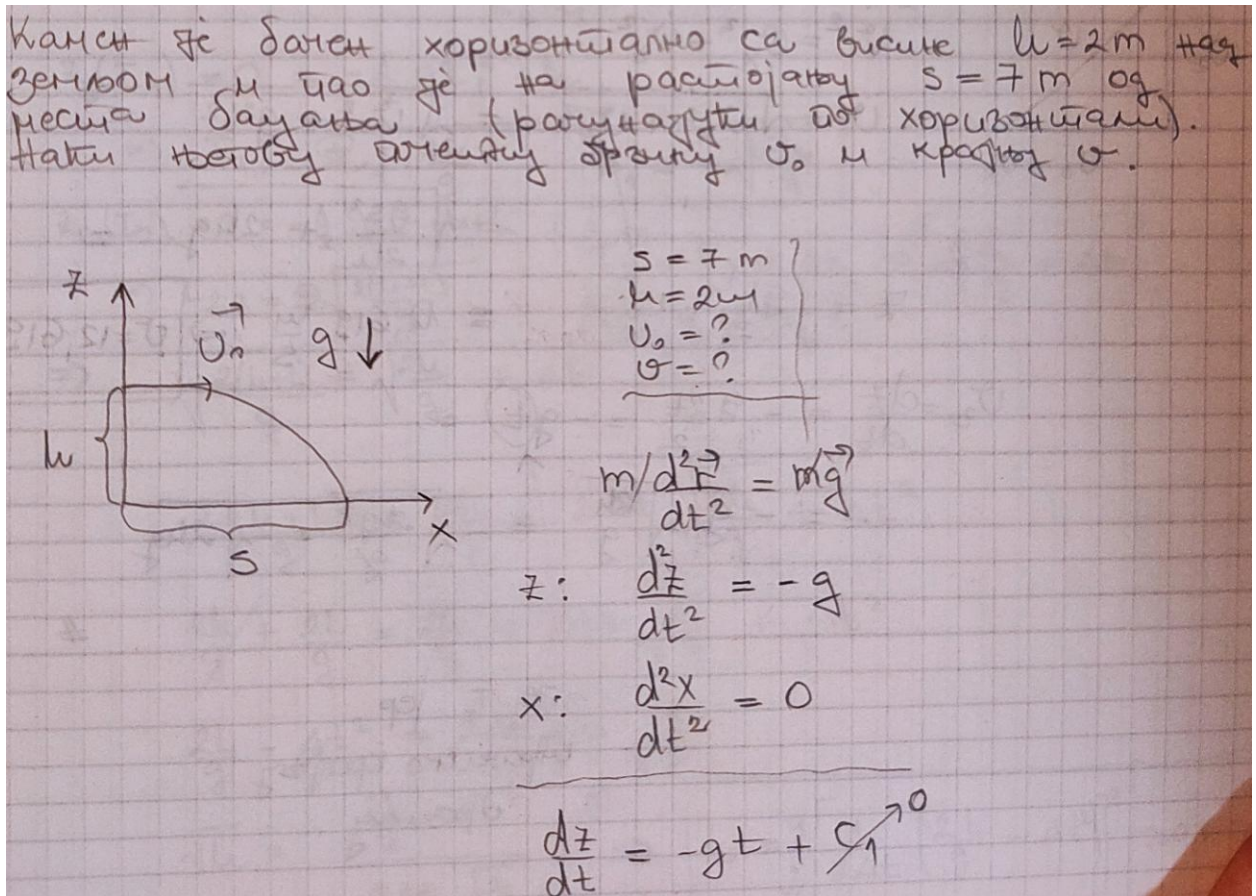 Камен је бачен хоризонтално са висине h = 2 m над
земљом и пао је на растојању s = 7 m од
места бацања (рачунајући по хоризонтали).
Наћи његову почетну брзину v₀ и крајњу v.
s = 7 m
h = 2 m
v₀ = ?
v = ?
z
v₀
g ↓
h
s
x
m/ d²r⃗/dt² = mg⃗
z: d²z/dt² = -g
x: d²x/dt² = 0
dz/dt = -gt + C₁ → 0